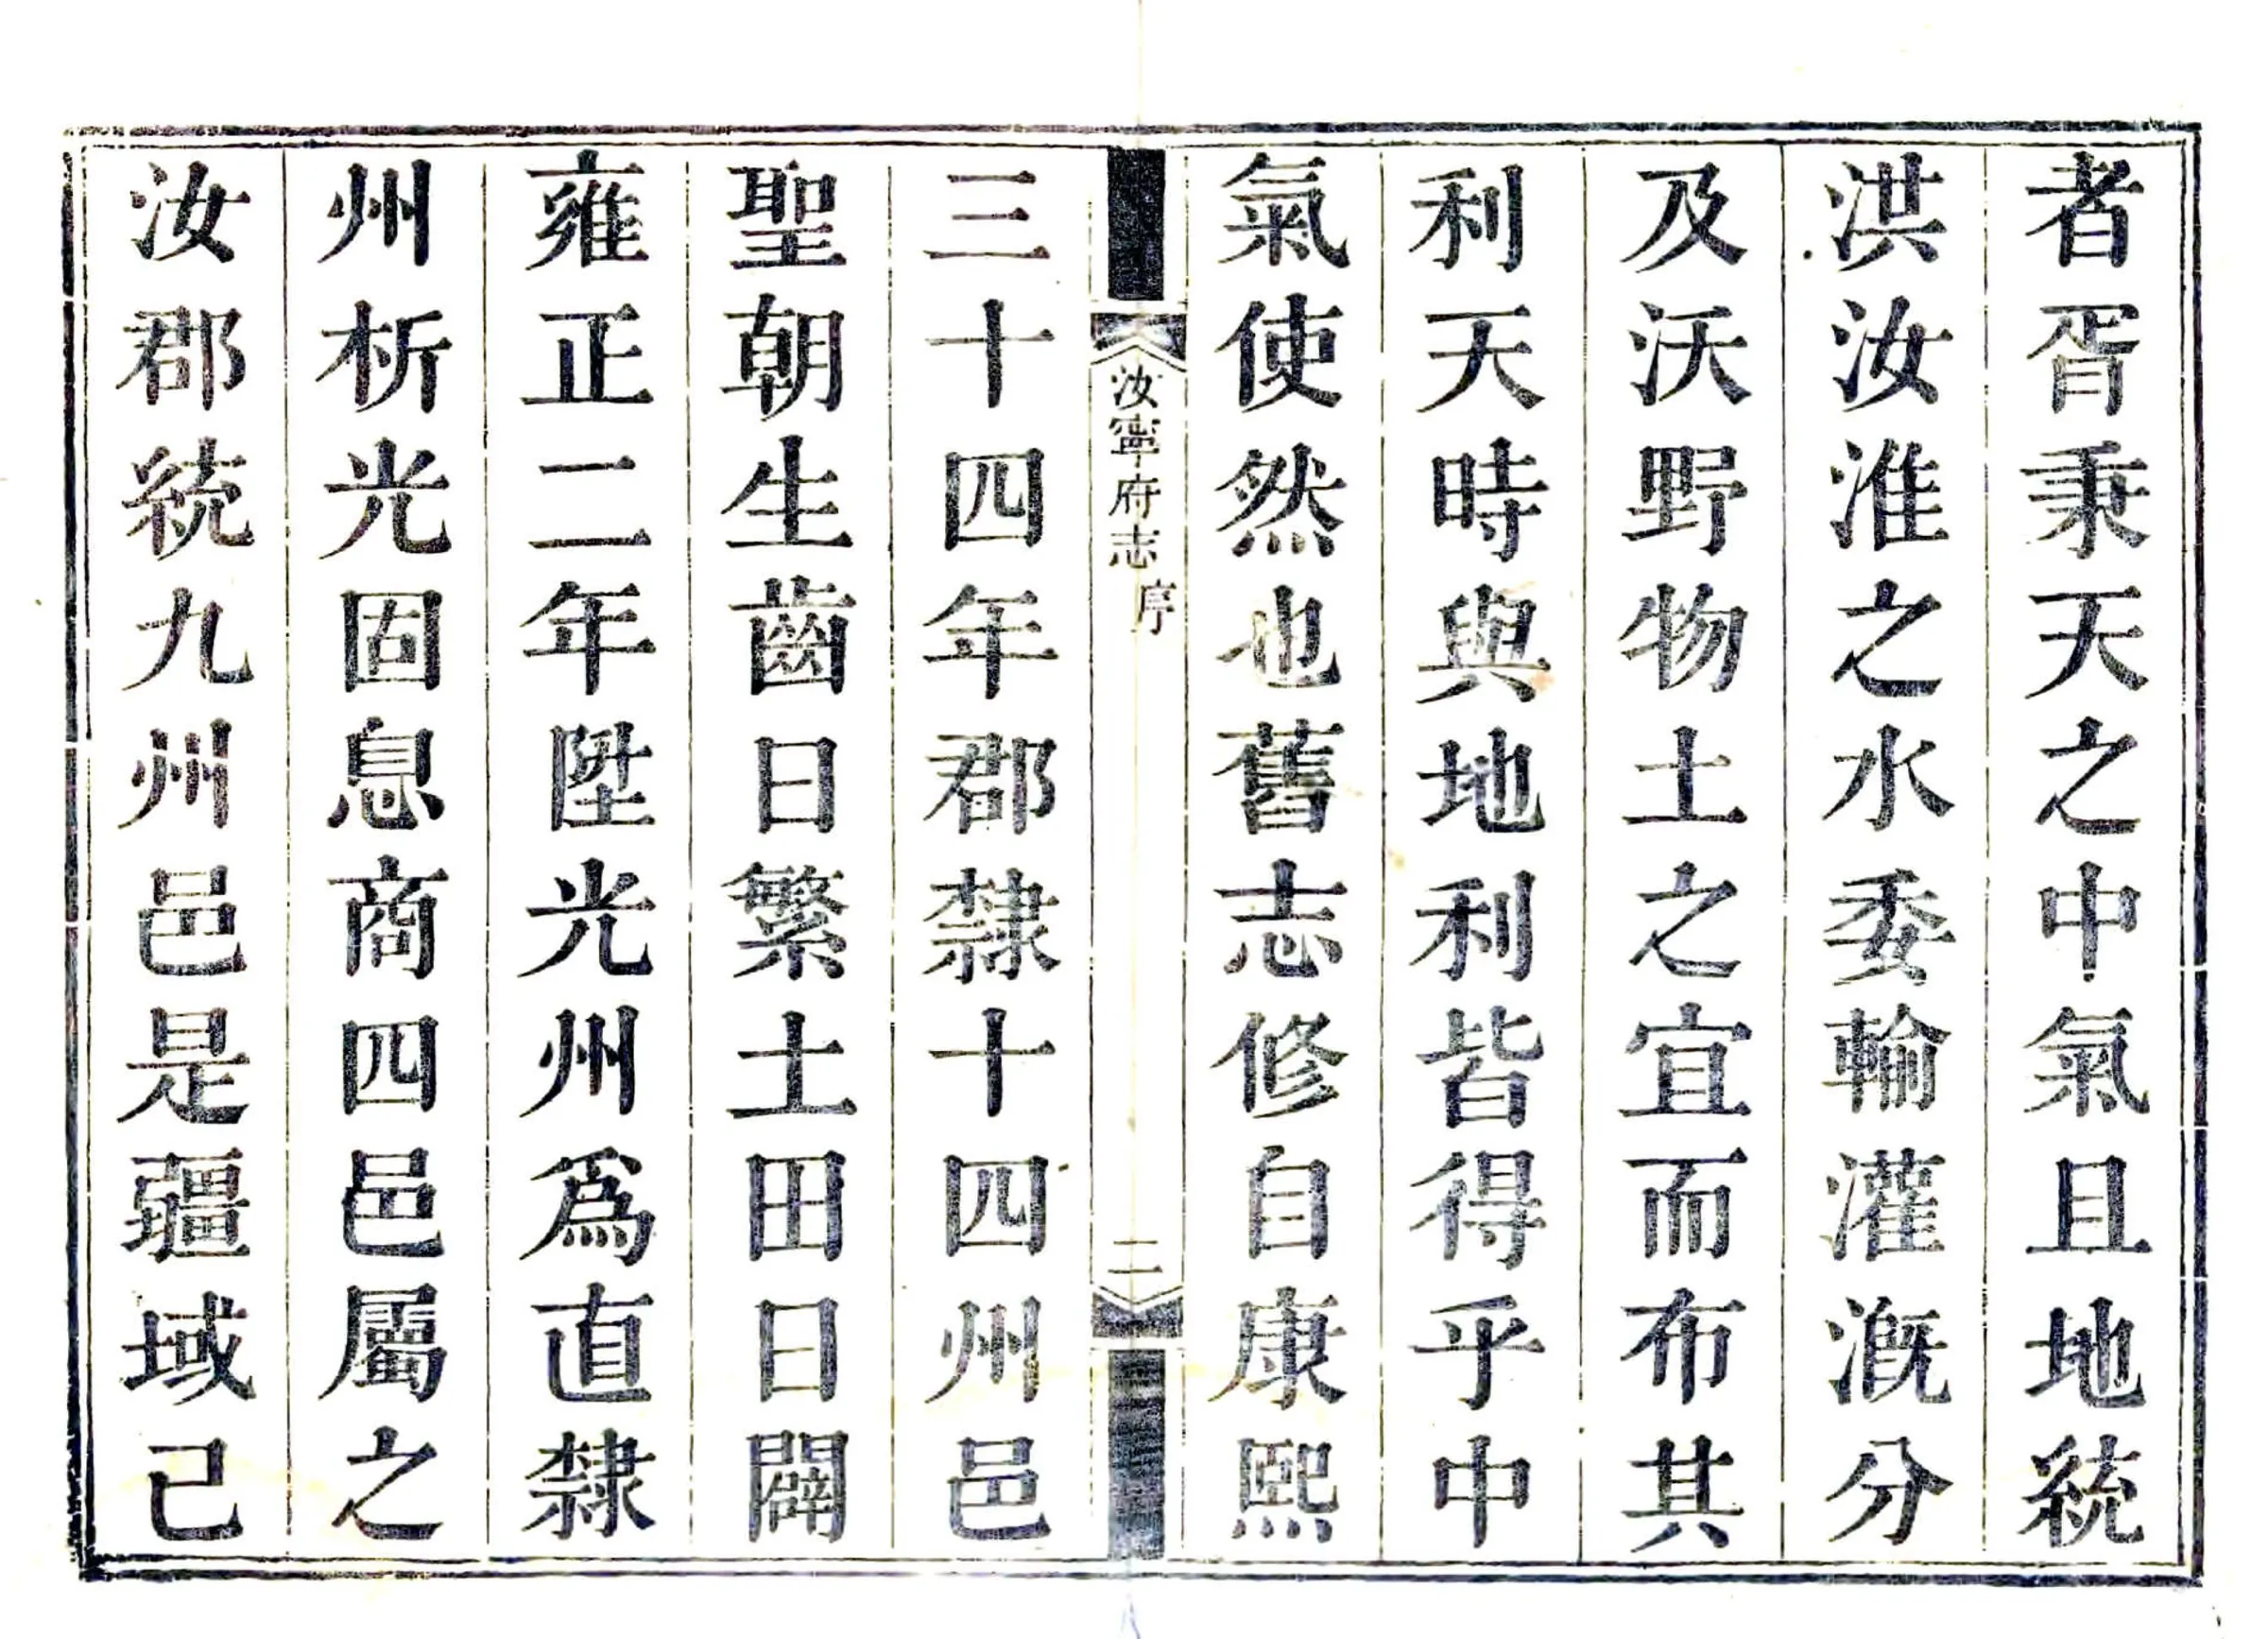 者胥秉天之中氣且地統
洪汝淮之水委輸灌漑分
及沃野物土之宜而布其
利天時與地利皆得乎中
氣使然也舊志修自康熙
汝寧府志
序
二
三十四年郡隸十四州邑
聖朝生齒日繁土田日闢
雍正二年陞光州爲直隸
州析光固息商四邑屬之
汝郡統九州邑是疆域已